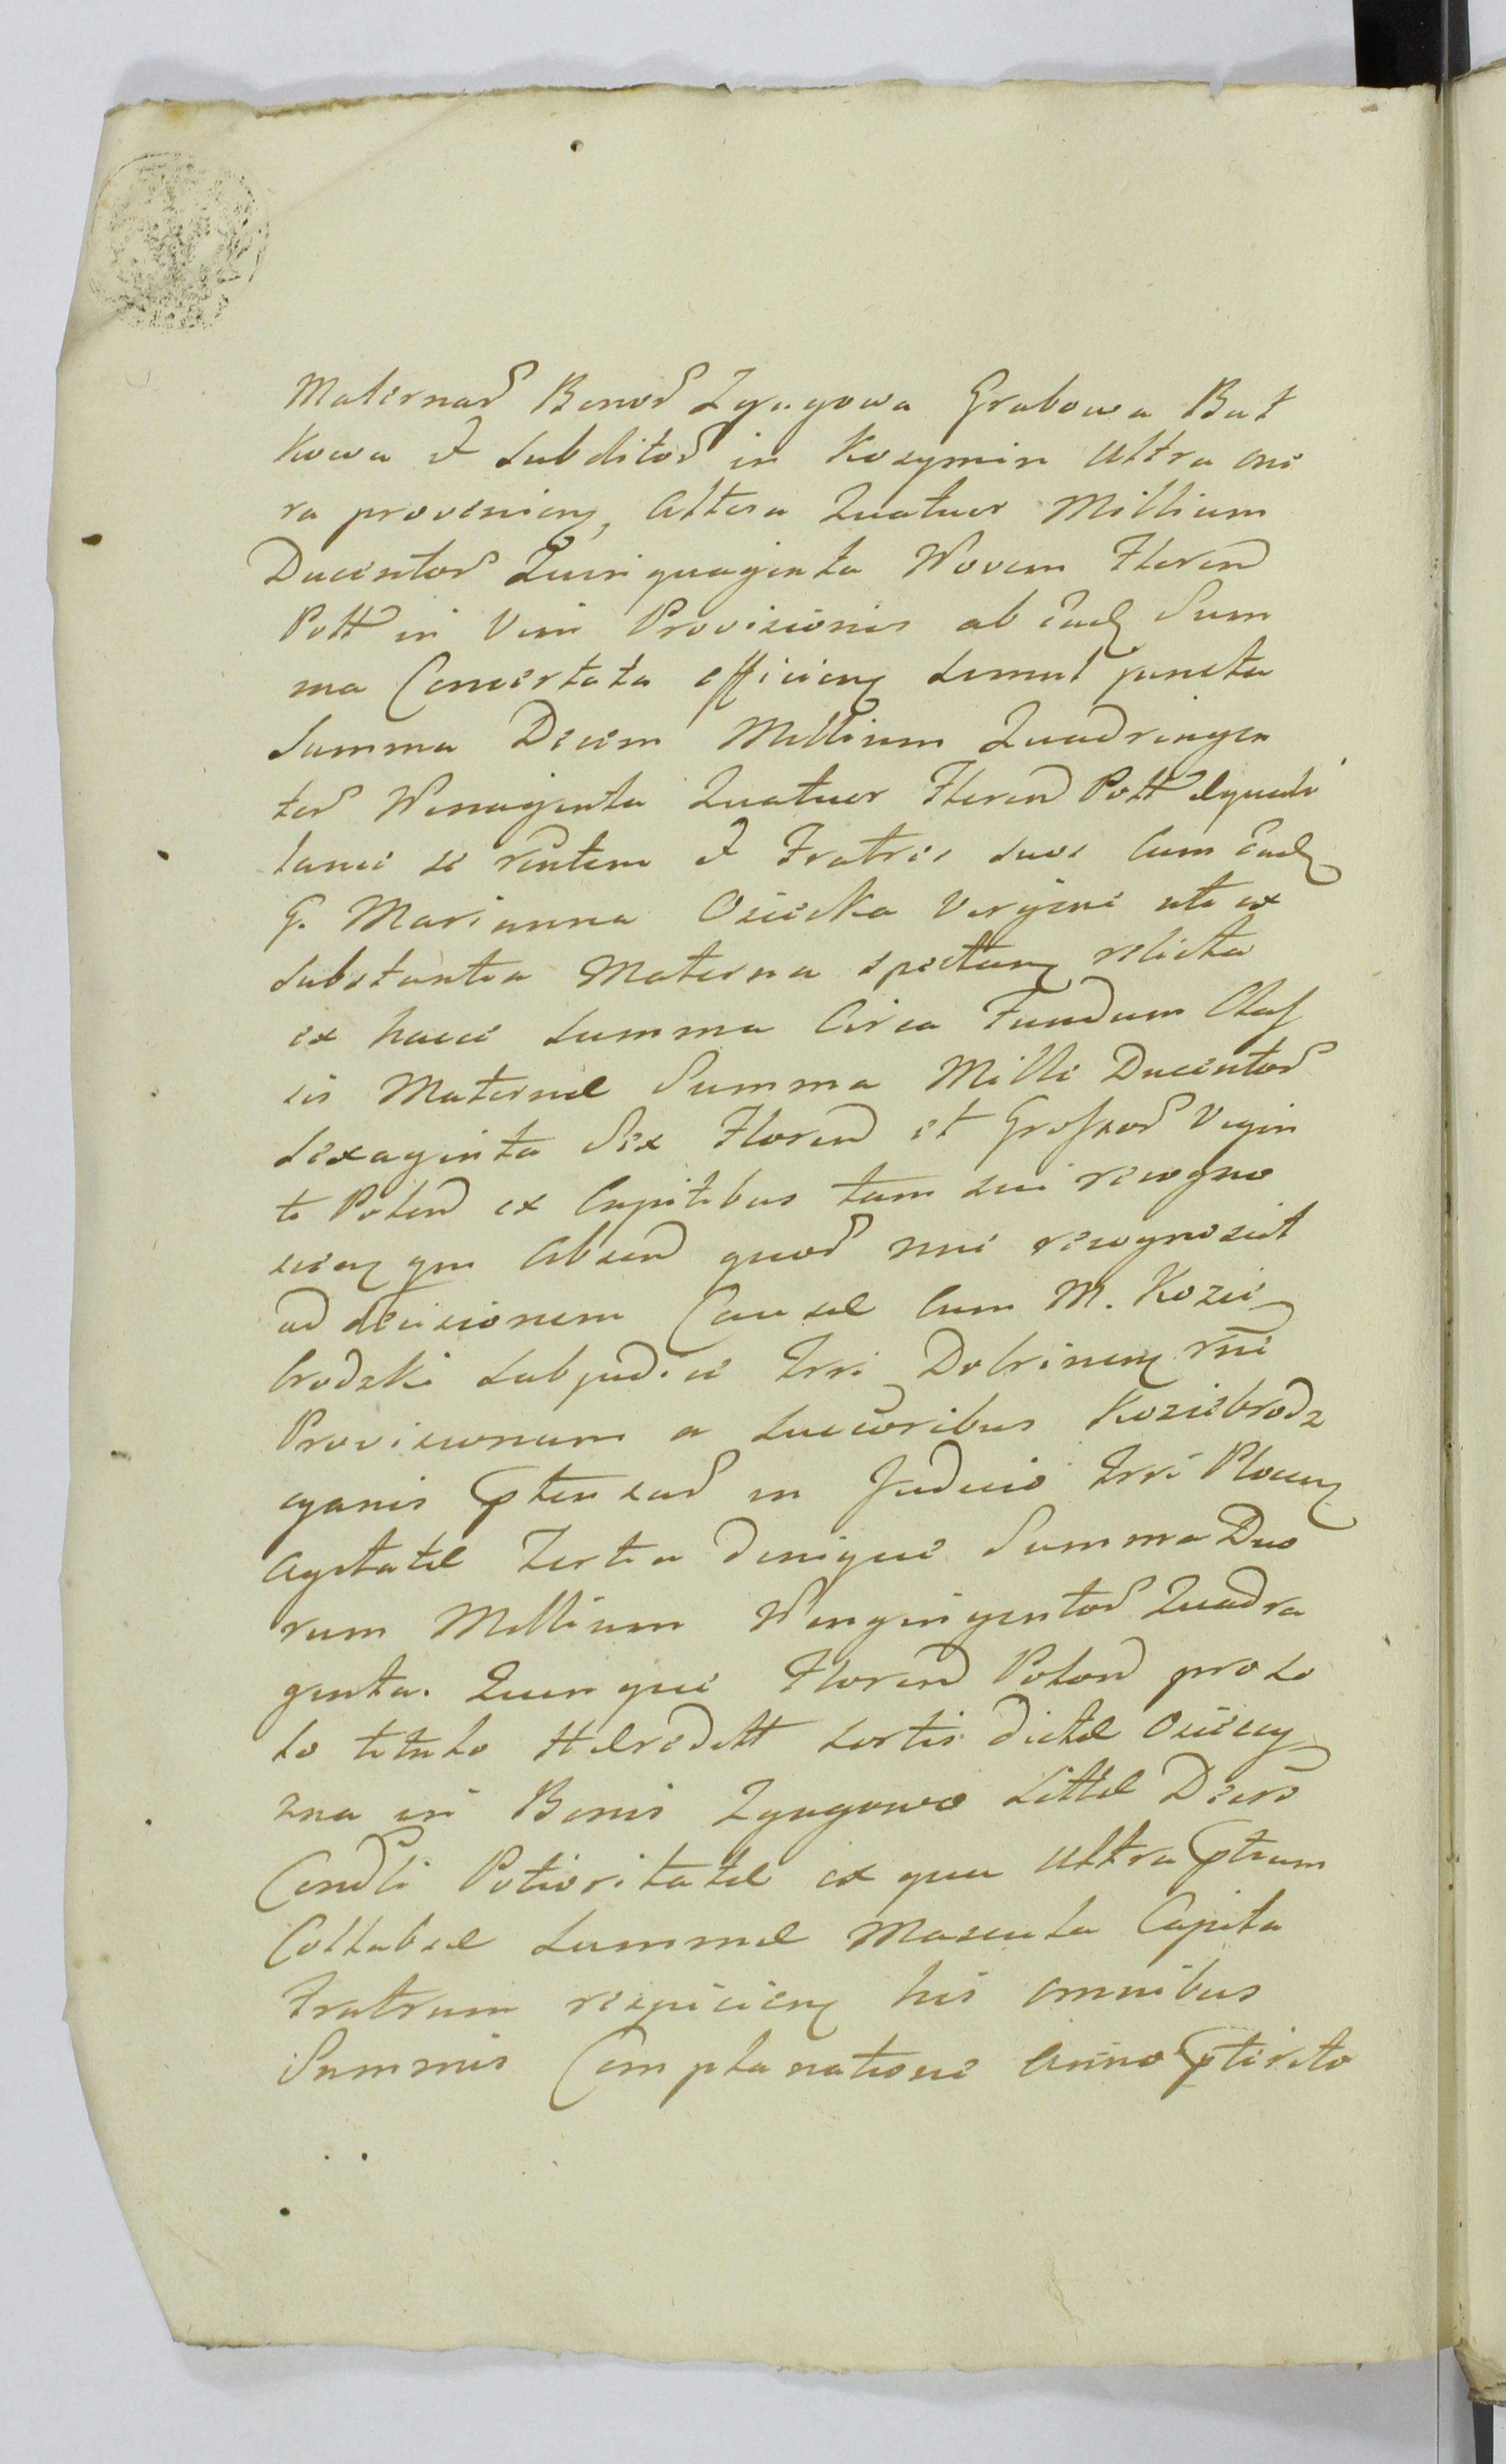 Maternar Bonor Zgagowa Grabowa Bat
kowa et Subditor in Kozymin Ultra one
ra provenien, Altera Quatuor Millium
Ducentor Quinquaginta Novem Floren
Poll in Vim Provisionis ab ead Sum
ma Concertata efficien Simul juncta
Summa Decem Millium Quadringen
tor Nonaginta Quatuor Floren Poll
lance se et Fratres suos Cum ead
G. Marianna Osiecka Virgine uti ex
Substantia Materna spectan relicta
ex hacce Summa Circa Fundum
sis Maternæ Summa Mille Ducentor
Sexaginta Sex Floren et Grossor Vigin
ti Polon ex Capitibus tam sui recogno
scien qm Absen quor nne recognoscit
ad decisionem Causæ Cum M. Kozie
brodzki Subjudice Trri Dobrinen rne
Provisionum a Succoribus Koziebrodz
cyanis ptensar in Judicio Trri Plocen
Agitatæ Tertia denique Summa Duo
rum Millium Nongingentor Quadra
ginta. Quinque Floren Polon pro so
lo titulo Hæredit Sortis dictæ Osiecy
zna in Bonis Zgagowo Littæ Decis
Condli Potioritatæ ex qua Ultra ptium
Collabsæ Summæ Mascula Capita
Fratrum respicien his omnibus
Summis Complanatione Anno ptirito